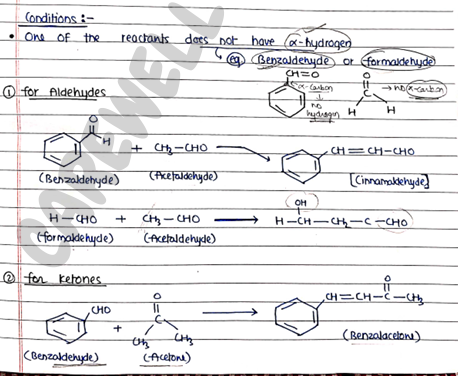 Conditions :-
• One of the reactants does not have α-hydrogen
eg Benzaldehyde or formaldehyde
CH=O
α-carbon
no
hydrogen
O
C
H H
→ no α-carbon
① for Aldehydes
O
H
+ CH₃-CHO
CH=CH-CHO
(Benzaldehyde) (Acetaldehyde) [Cinnamaldehyde]
OH
H-CHO + CH₃-CHO → H-CH-CH₂-C-CHO
(formaldehyde) (Acetaldehyde)
② for Ketones
CHO
+
O
C
CH₃ CH₃
O
CH=CH-C-CH₃
(Benzaldehyde) (Acetone) (Benzalacetone)
CAREWELL